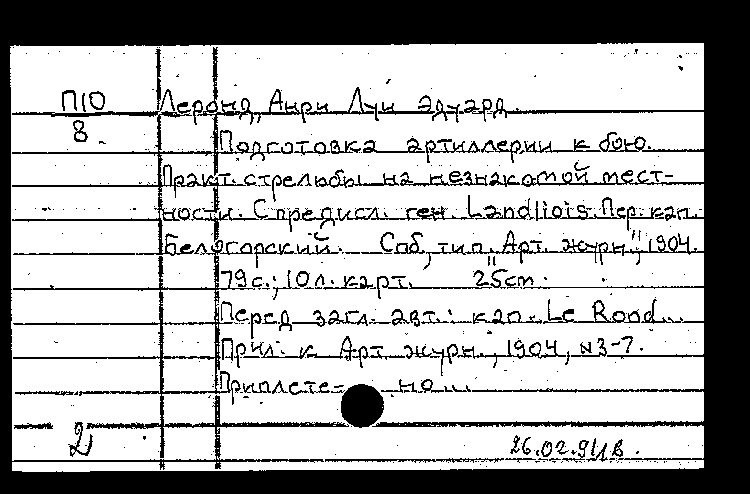 П10 Леронд, Анри Луи Эдуард.
8. Подготовка артиллерии к бою.
Практ. стрельбы на незнакомой мест-
ности. С предисл. ген. Landliois. Пер. кап.
Белогорский. Спб, тип. "Арт. журн.", 1904.
79 с.; 10 л. карт. 25 cm.
Перед загл. авт.: кап. Le Rond...
Прил. к Арт. журн., 1904, N3-7.
Приплете- но...
2
26.02.91